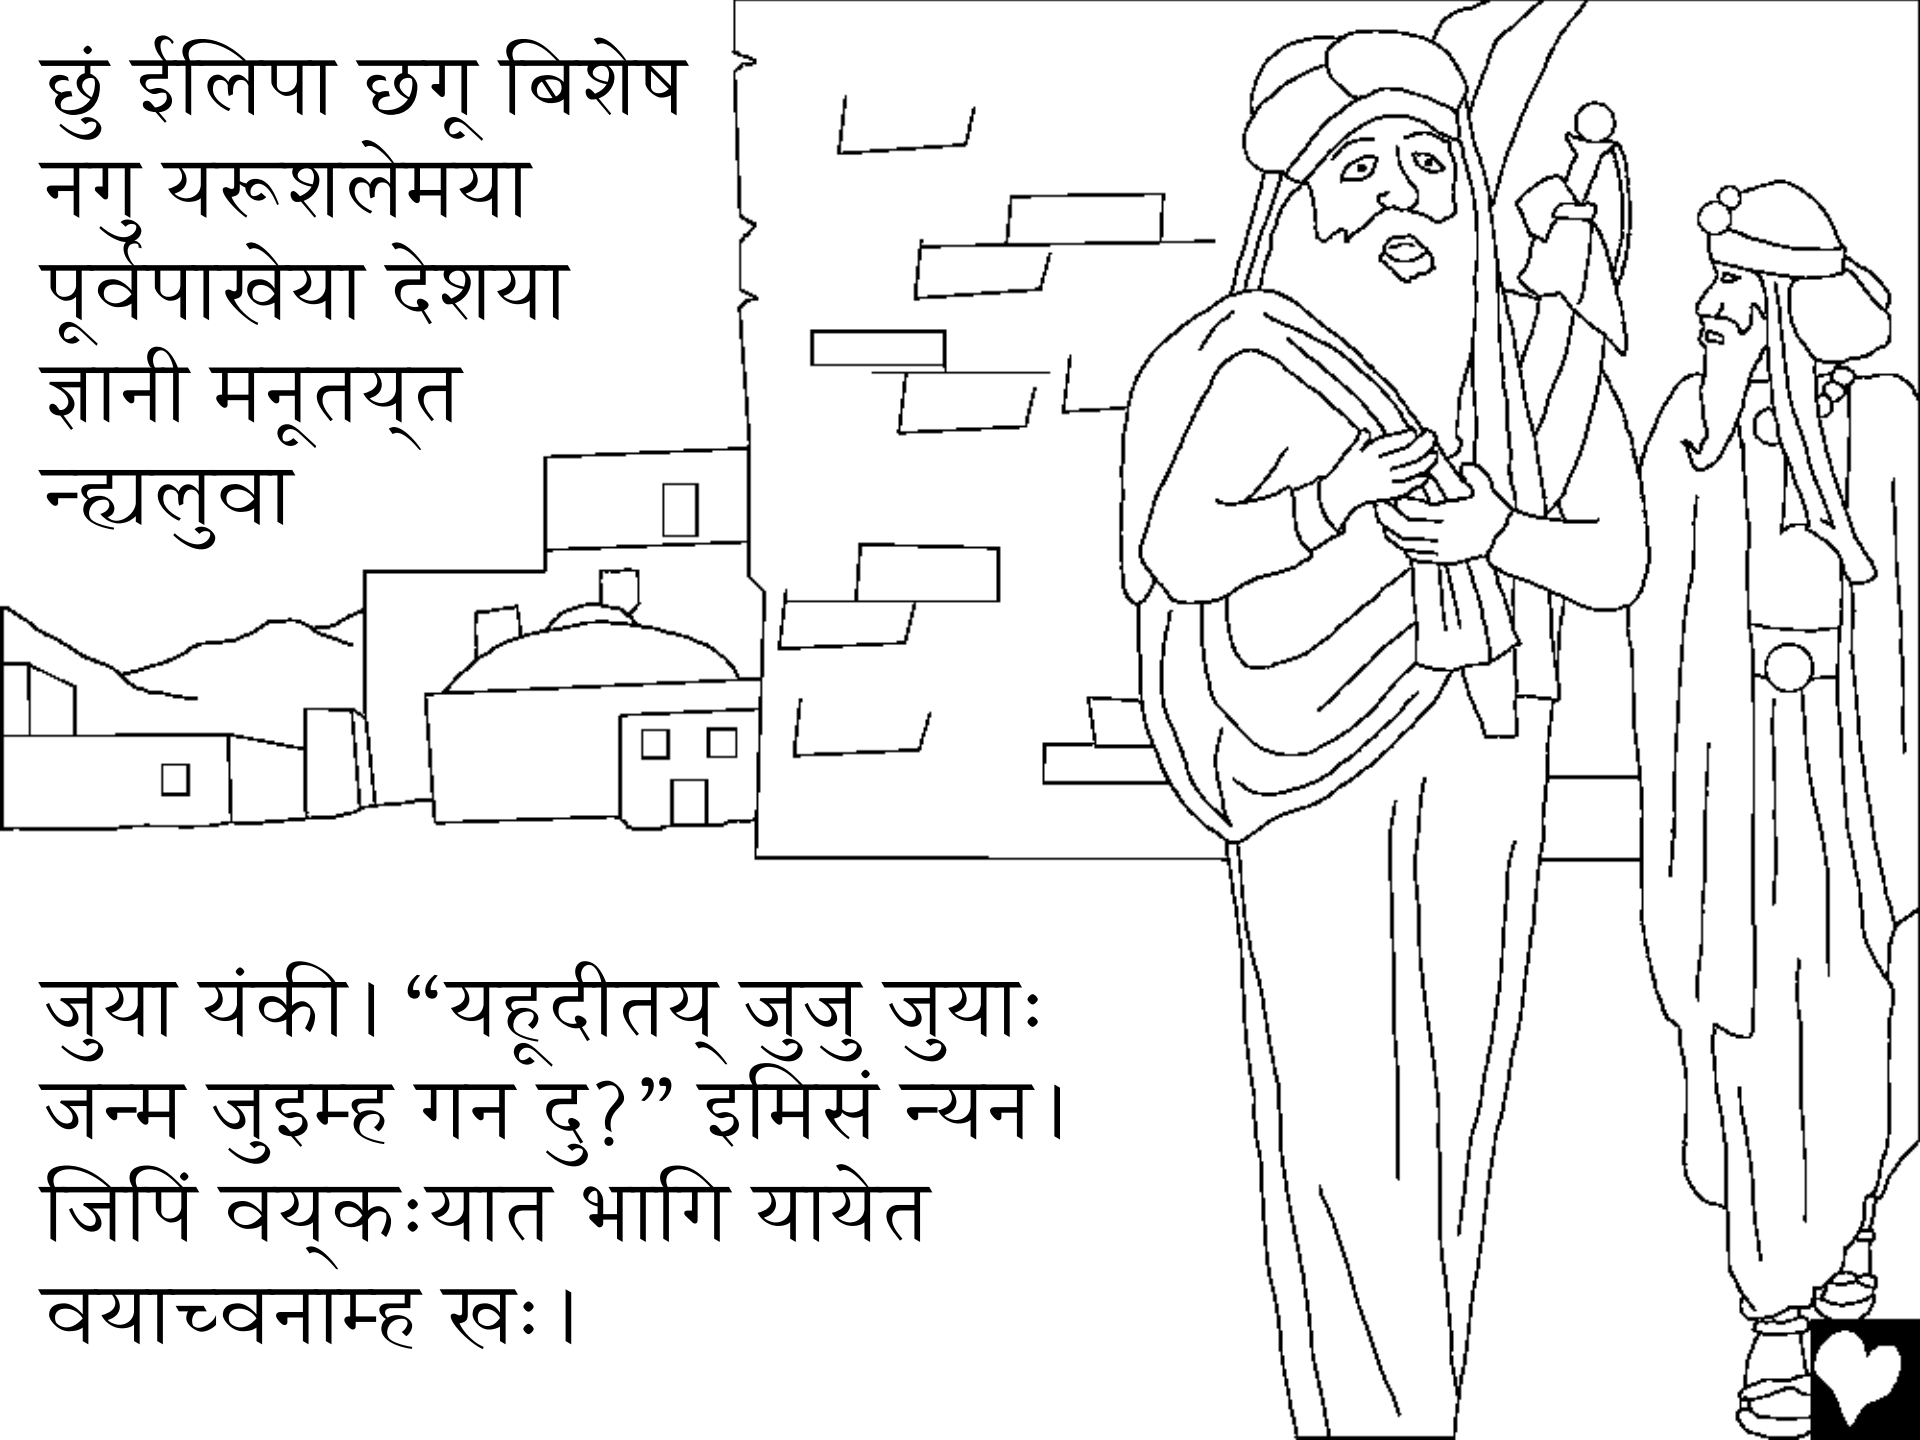 छुं ईलिपा छगू बिशेष
नगु यरूशलेमया
पूर्वपाखेया देशया
ज्ञानी मनूतय्‌त
न्ह्यलुवा
जुया यंकी। “यहूदीतय् जुजु जुयाः
जन्म जुइम्ह गन दु?” इमिसं न्यन।
जिपिं वय्‌कःयात भागि यायेत
वयाच्वनाम्ह खः।